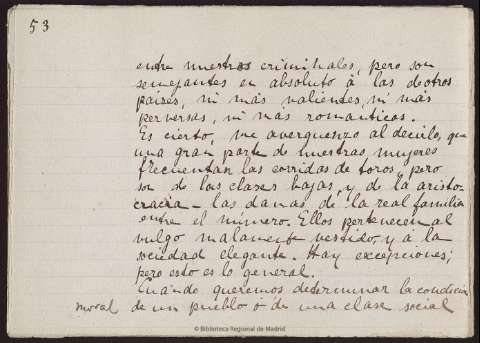 53
entre nuestros criminales, pero son
semejantes en absoluto á las de otros
paises, ni más valientes, ni más
perversas, ni más romanticas.
Es cierto, me averguenzo al decirlo, que
una gran parte de nuestras mujeres
frecuentan las corridas de toros, pero
son de las clases bajas, y de la aristo-
cracia – las damas de la real familia
entre el número. Ellos pertenecen al
vulgo malamente vestido, y á la
sociedad elegante. Hay excepciones;
pero esto es lo general.
Cuando queremos determinar la condición
moral de un pueblo ó de una clase social
© Biblioteca Regional de Madrid